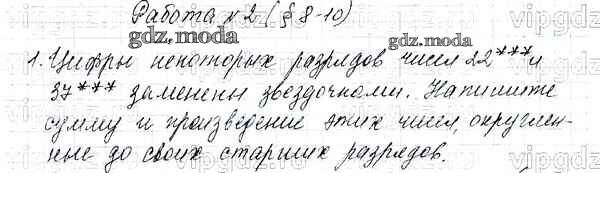 Работа №2 (§ 8-10)
gdz.moda
1. Цифры некоторых разрядов чисел 22*** и
37*** заменены звездочками. Напишите
сумму и произведение этих чисел, округлен-
ные до своих старших разрядов.